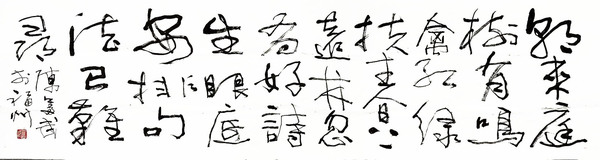 朝來庭
樹有鳴
禽紅綠
扶春上
遠林忽
有好詩
生眼底
安排句
法已難
尋
陳
於福州